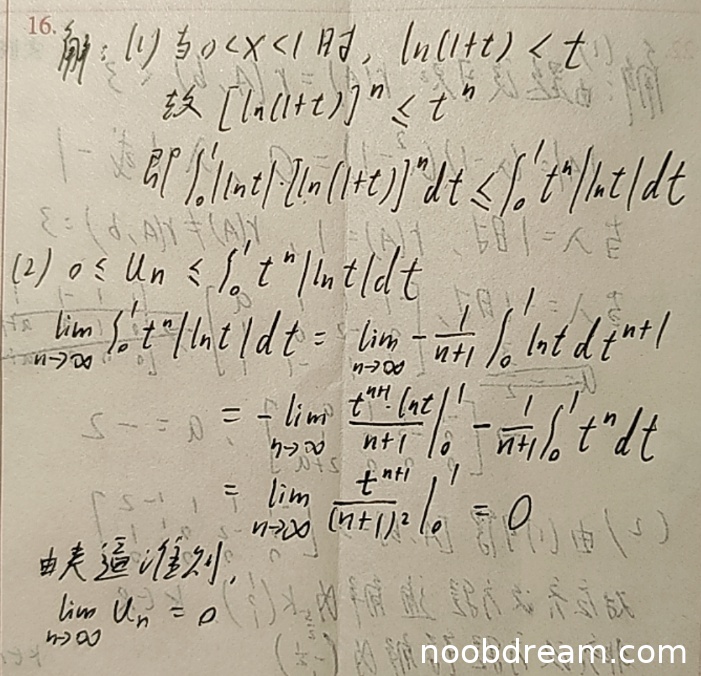 16.
解：(1) 当0<x<1时, ln(1+t) < t
故 [ln(1+t)]ⁿ ≤ tⁿ
即 ∫₀¹|lnt|·[ln(1+t)]ⁿdt ≤ ∫₀¹ tⁿ|lnt|dt
(2) 0 ≤ Un ≤ ∫₀¹ tⁿ|lnt|dt
lim_{n→∞} ∫₀¹ tⁿ|lnt|dt = lim_{n→∞} -1/(n+1) ∫₀¹ lnt dtⁿ⁺¹
= -lim_{n→∞} (tⁿ⁺¹·lnt)/(n+1) |₀¹ - 1/(n+1) ∫₀¹ tⁿdt
= lim_{n→∞} tⁿ⁺¹/(n+1)² |₀¹ = 0
由夹逼准则,
lim_{n→∞} Un = 0
noobdream.com